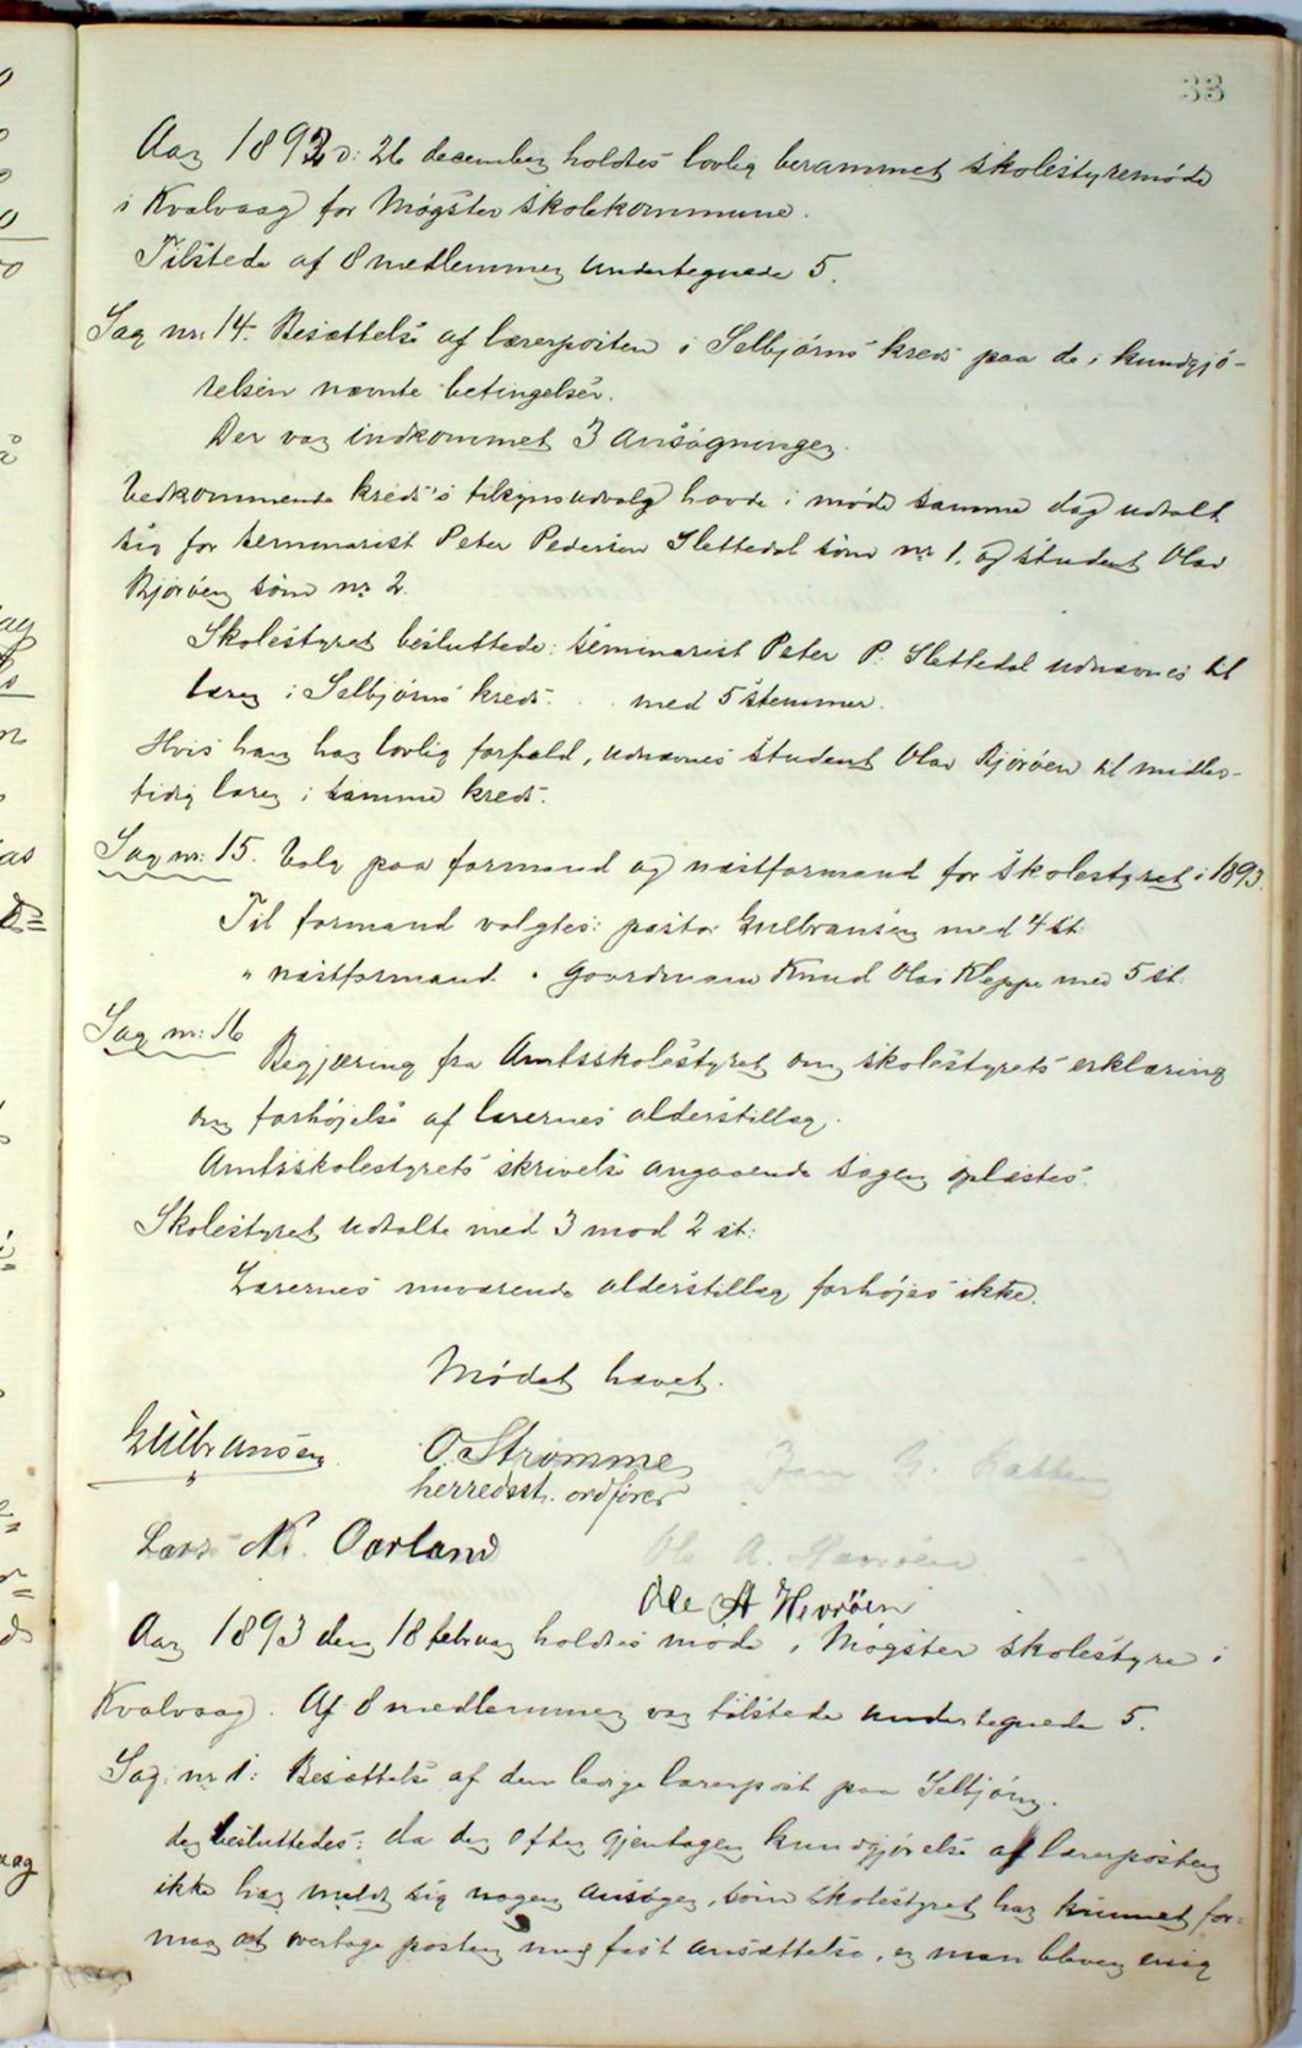 33
Aar 1892 d: 26 december holdtes lovlig berammet skolestyremøde
i Kvalvaag for Møgster skolekommune.
Tilstede af 8 medlemmer undertegnede 5.
Sag nr. 14. Besættelse af lærerposten i Selbjørns kreds paa de i kundgjø-
relsen nævnte betingelser.
Der var indkommet 3 ansøgninger.
Vedkommende kreds's tilsynsudvalg havde i møde samme dag udtalt
sig for seminarist Peter Pedersen Slettedal som nr 1. og student Olav
Bjorøen som nr 2.
Skolestyret besluttede: seminarist Peter P. Slettedal udnævnes til
lærer i Selbjørns kreds. . . med 5 stemmer.
Hvis han har lovlig forfald, udnævnes student Olav Bjorøen til midler-
tidig lærer i samme kreds.
Sag nr: 15. Valg paa formand og næstformand for skolestyret i 1893.
Til formand valgtes: pastor Gulbransen med 4 st:
" næstformand " gaardmann Knud Olai Kleppe med 5 st.
Sag nr: 16
Begjæring fra Amtsskolestyret om skolestyrets erklæring
om forhøjelse af lærernes alderstillæg.
Amtsskolestyrets skrivelse angaaende sagen oplæstes.
Skolestyret udtalte med 3 mod 2 st:
Lærernes nuværende alderstillæg forhøjes ikke.
Mødet hævet.
Gulbransen O. Strømme
herredsst. ordfører
Lars N. Oarland Ole A.
Ole A Hevrøen
Aar 1893 den 18 februar holdtes møde i Møgster skolestyre i
Kvalvaag. Af 8 medlemmer var tilstede undertegnede 5.
Sag nr 1: Besættelse af den ledige lærerpost paa Selbjørn.
der besluttedes: da der efter gjentagen kundgjørelse af lærerposten
ikke har meldt sig nogen ansøger, som skolestyret har kunnet for-
maa at overtage posten med fast ansættelse, er man bleven enig